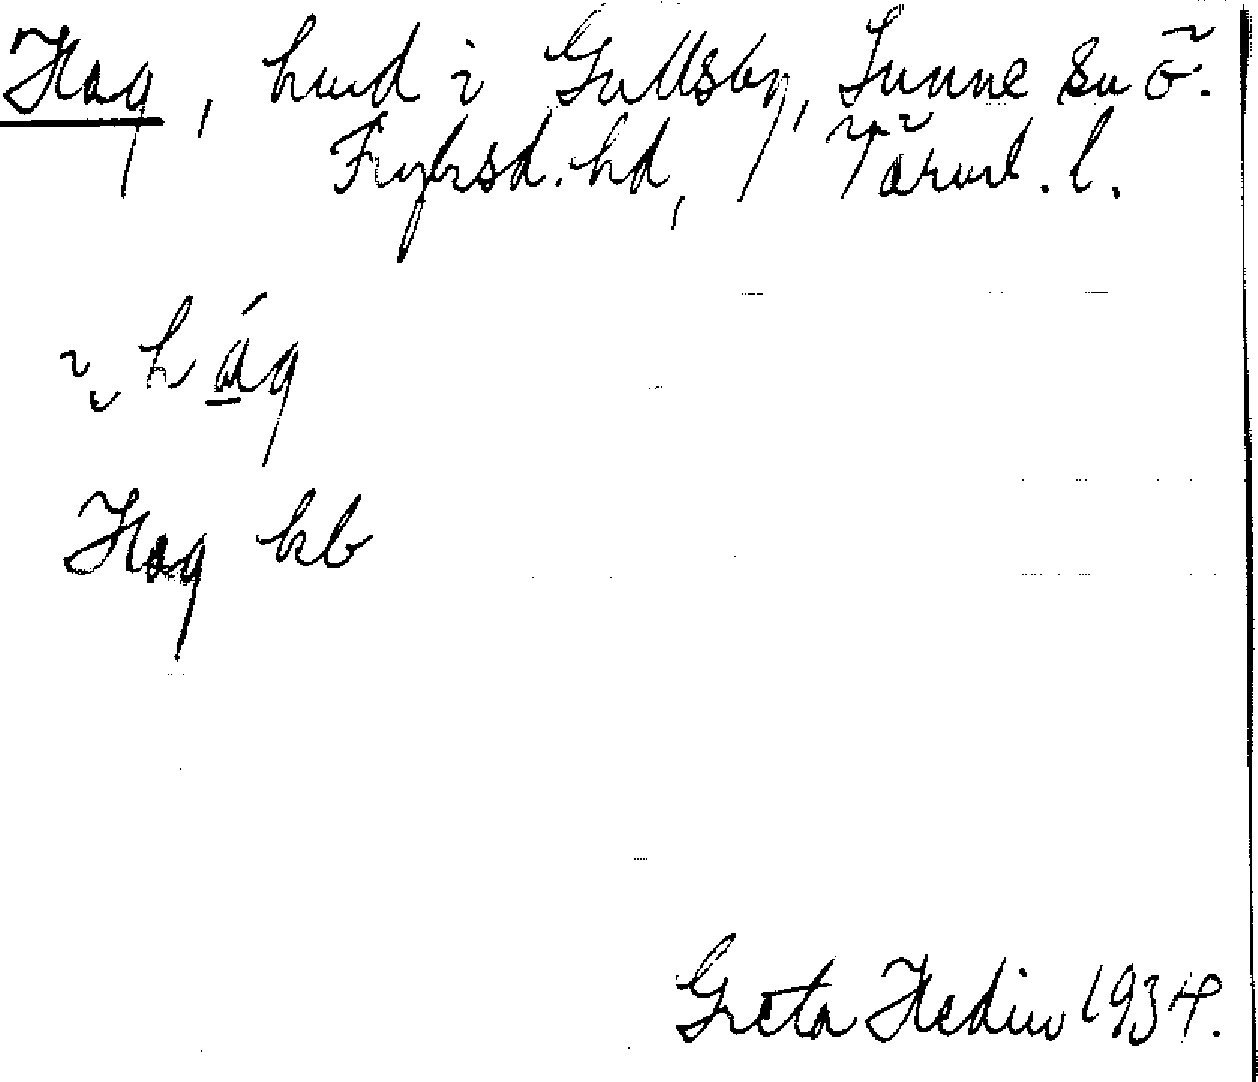 Hag, hmd i Gullsby, Sunne sn Ö.
Fryksd. hd, Värml. l.
i hág
Hag kb
Greta Hedin 1934.